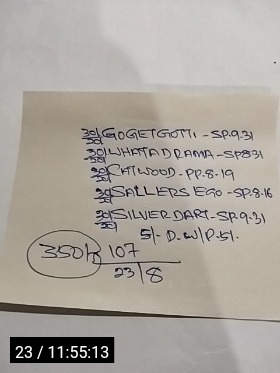 30/30 GOGETGOTTI - SP.9.31
30/30 WHATADRAMA - SP831
30/30 CATWOOD - PP.8-19
30/30 SALLERS EGO - SP-8-16
30/30 SILVER DART - SP.9-31
5/- D.W/P.51.
350/- 107
23/8
23 / 11:55:13